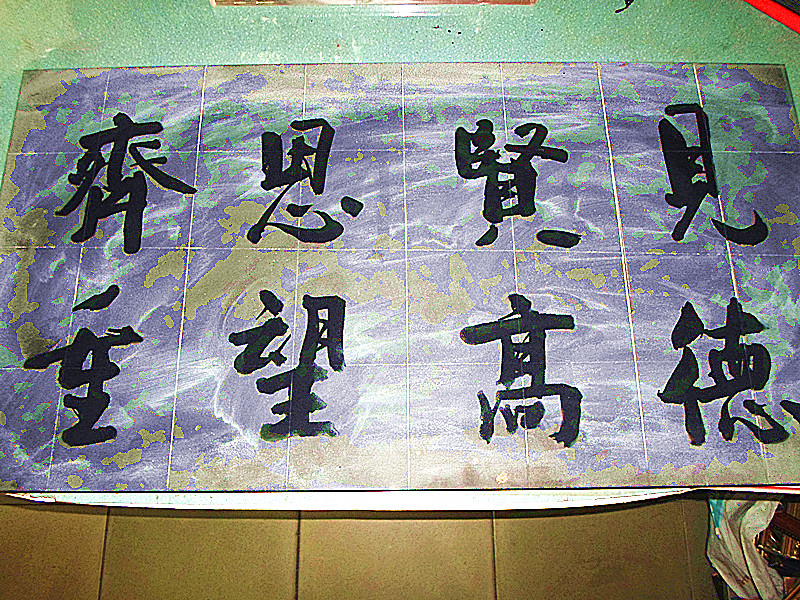 見賢思齊
德高望重